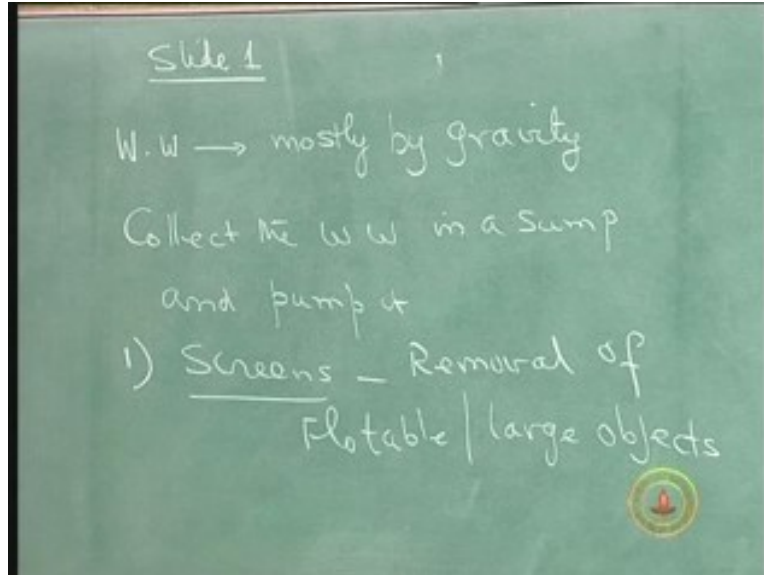 Slide 1
W.W → mostly by gravity
Collect the W W in a Sump
and pump it
1) Screens - Removal of
Flotable / large objects